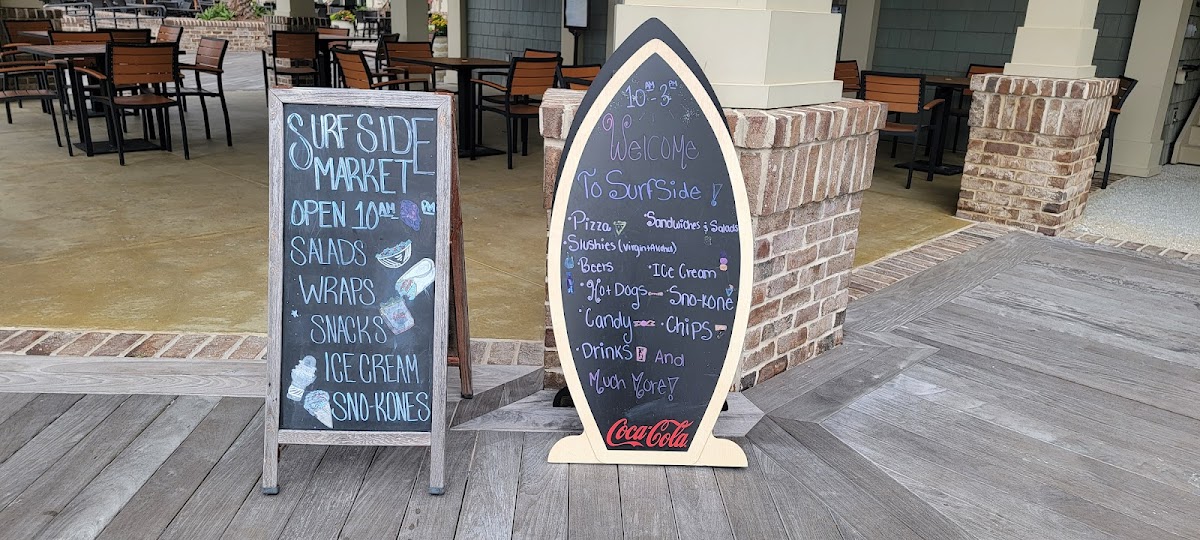 SURFSIDE
MARKET
OPEN 10AM PM
SALADS
WRAPS
SNACKS
ICE CREAM
SNO-KONES
10AM-3PM
Welcome
To SurfSide!
·Pizza ·Sandwiches & Salads
·Slushies (Virgin + Alcohol)
·Beers ·ICe Cream
·Hot Dogs ·Sno-Kone
·Candy ·Chips
·Drinks And
Much More!
Coca-Cola